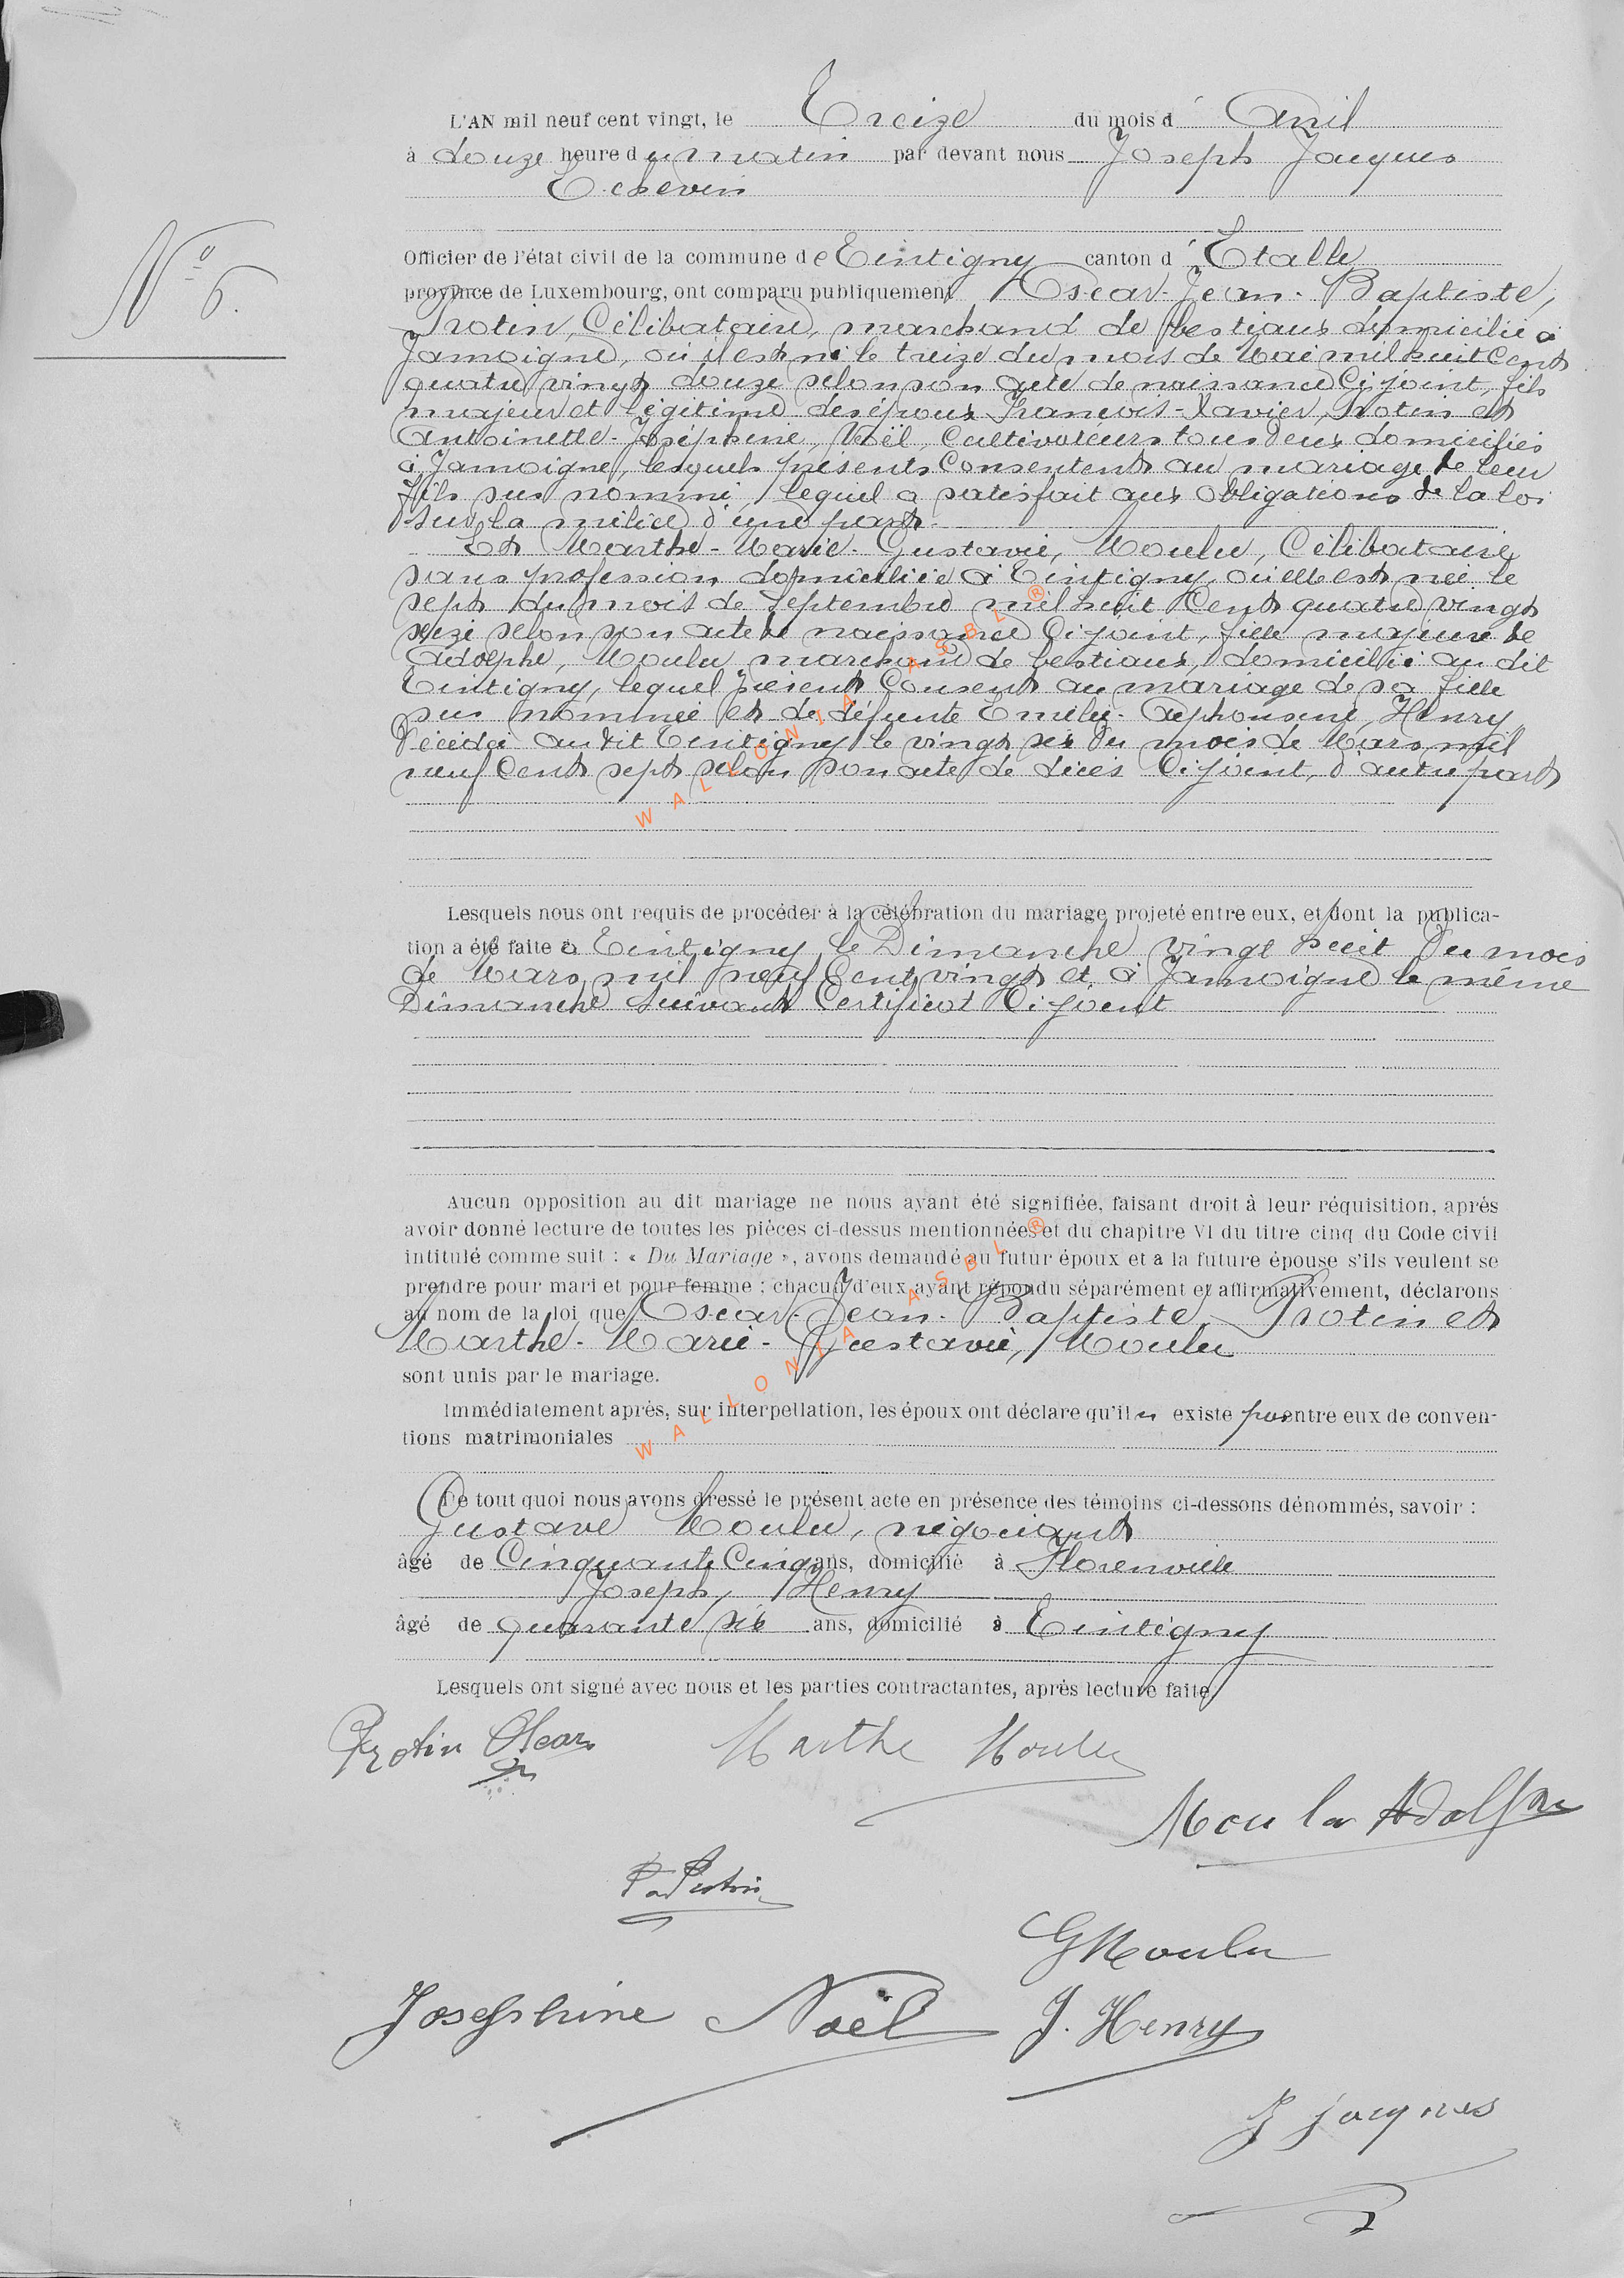 L'AN mil neuf cent vingt, le Treize du mois d' Avril
à douze heure du matin par devant nous Joseph Jacques
Echevin
N° 6.
Officier de l'état civil de la commune de Tintigny canton d' Etalle
province de Luxembourg, ont comparu publiquement Oscar-Jean-Baptiste,
Protin, Célibataire, marchand de bestiaux domicilié à
Jamoigne, où il est né le treize du mois de Mai mil huit Cent
quatre vingt douze selon son acte de naissance Ci joint, fils
majeur et légitime des époux François-Xavier, Protin et
Antoinette-Joséphine, Noël, Cultivateurs tous deux domiciliés
à Jamoigne, lesquels présents Consentent au mariage de leur
fils sus nommé, lequel a satisfait aux Obligations de la loi
sur la milice d'une part.
Et Marthe-Marie-Gustavie, Moulu, Célibataire
sans profession domiciliée à Tintigny, où elle est née le
sept du mois de Septembre mil huit Cent quatre vingt
seize selon son acte de naissance Ci joint, fille majeure de
Adolphe, Moulu marchand de bestiaux, domicilié au dit
Tintigny, lequel présent Consent au mariage de sa fille
sus nommée et de défunte Emélie-Alphonsine, Henry
Décédée au dit Tintigny le vingt six du mois de Mars mil
neuf Cent sept selon son acte de décès Ci joint, d'autre part
Lesquels nous ont requis de procéder à la célébration du mariage projeté entre eux, et dont la publica-
tion a été faite à Tintigny le Dimanche vingt huit du mois
de Mars mil neuf Cent vingt et à Jamoigne le même
Dimanche suivant Certificat Ci joint
Aucun opposition au dit mariage ne nous ayant été signifiée, faisant droit à leur réquisition, aprés
avoir donné lecture de toutes les pièces ci-dessus mentionnées et du chapitre VI du titre cinq du Code civil
intitulé comme suit : « Du Mariage », avons demandé au futur époux et a la future épouse s'ils veulent se
prendre pour mari et pour femme ; chacun d'eux ayant répondu séparément et affirmativement, déclarons
au nom de la loi que Oscar-Jean-Baptiste Protin et
Marthe-Marie-Gustavie, Moulu
sont unis par le mariage.
Immédiatement aprés, sur interpellation, les époux ont déclare qu'il n existe pas entre eux de conven-
tions matrimoniales
De tout quoi nous avons dressé le présent acte en présence des témoins ci-dessons dénommés, savoir :
Gustave Moulu, négociant
âgé de Cinquante Cinq ans, domicilié à Florenville
Joseph, Henry
âgé de quarante six ans, domicilié à Tintigny
Lesquels ont signé avec nous et les parties contractantes, après lecture faite.
Protin Oscar
Marthe Moulu
Moulu Adolphe
G Moulu
Josephine Noël
J. Henry
J Jacques
WALLONIA ASBL ®
WALLONIA ASBL ®